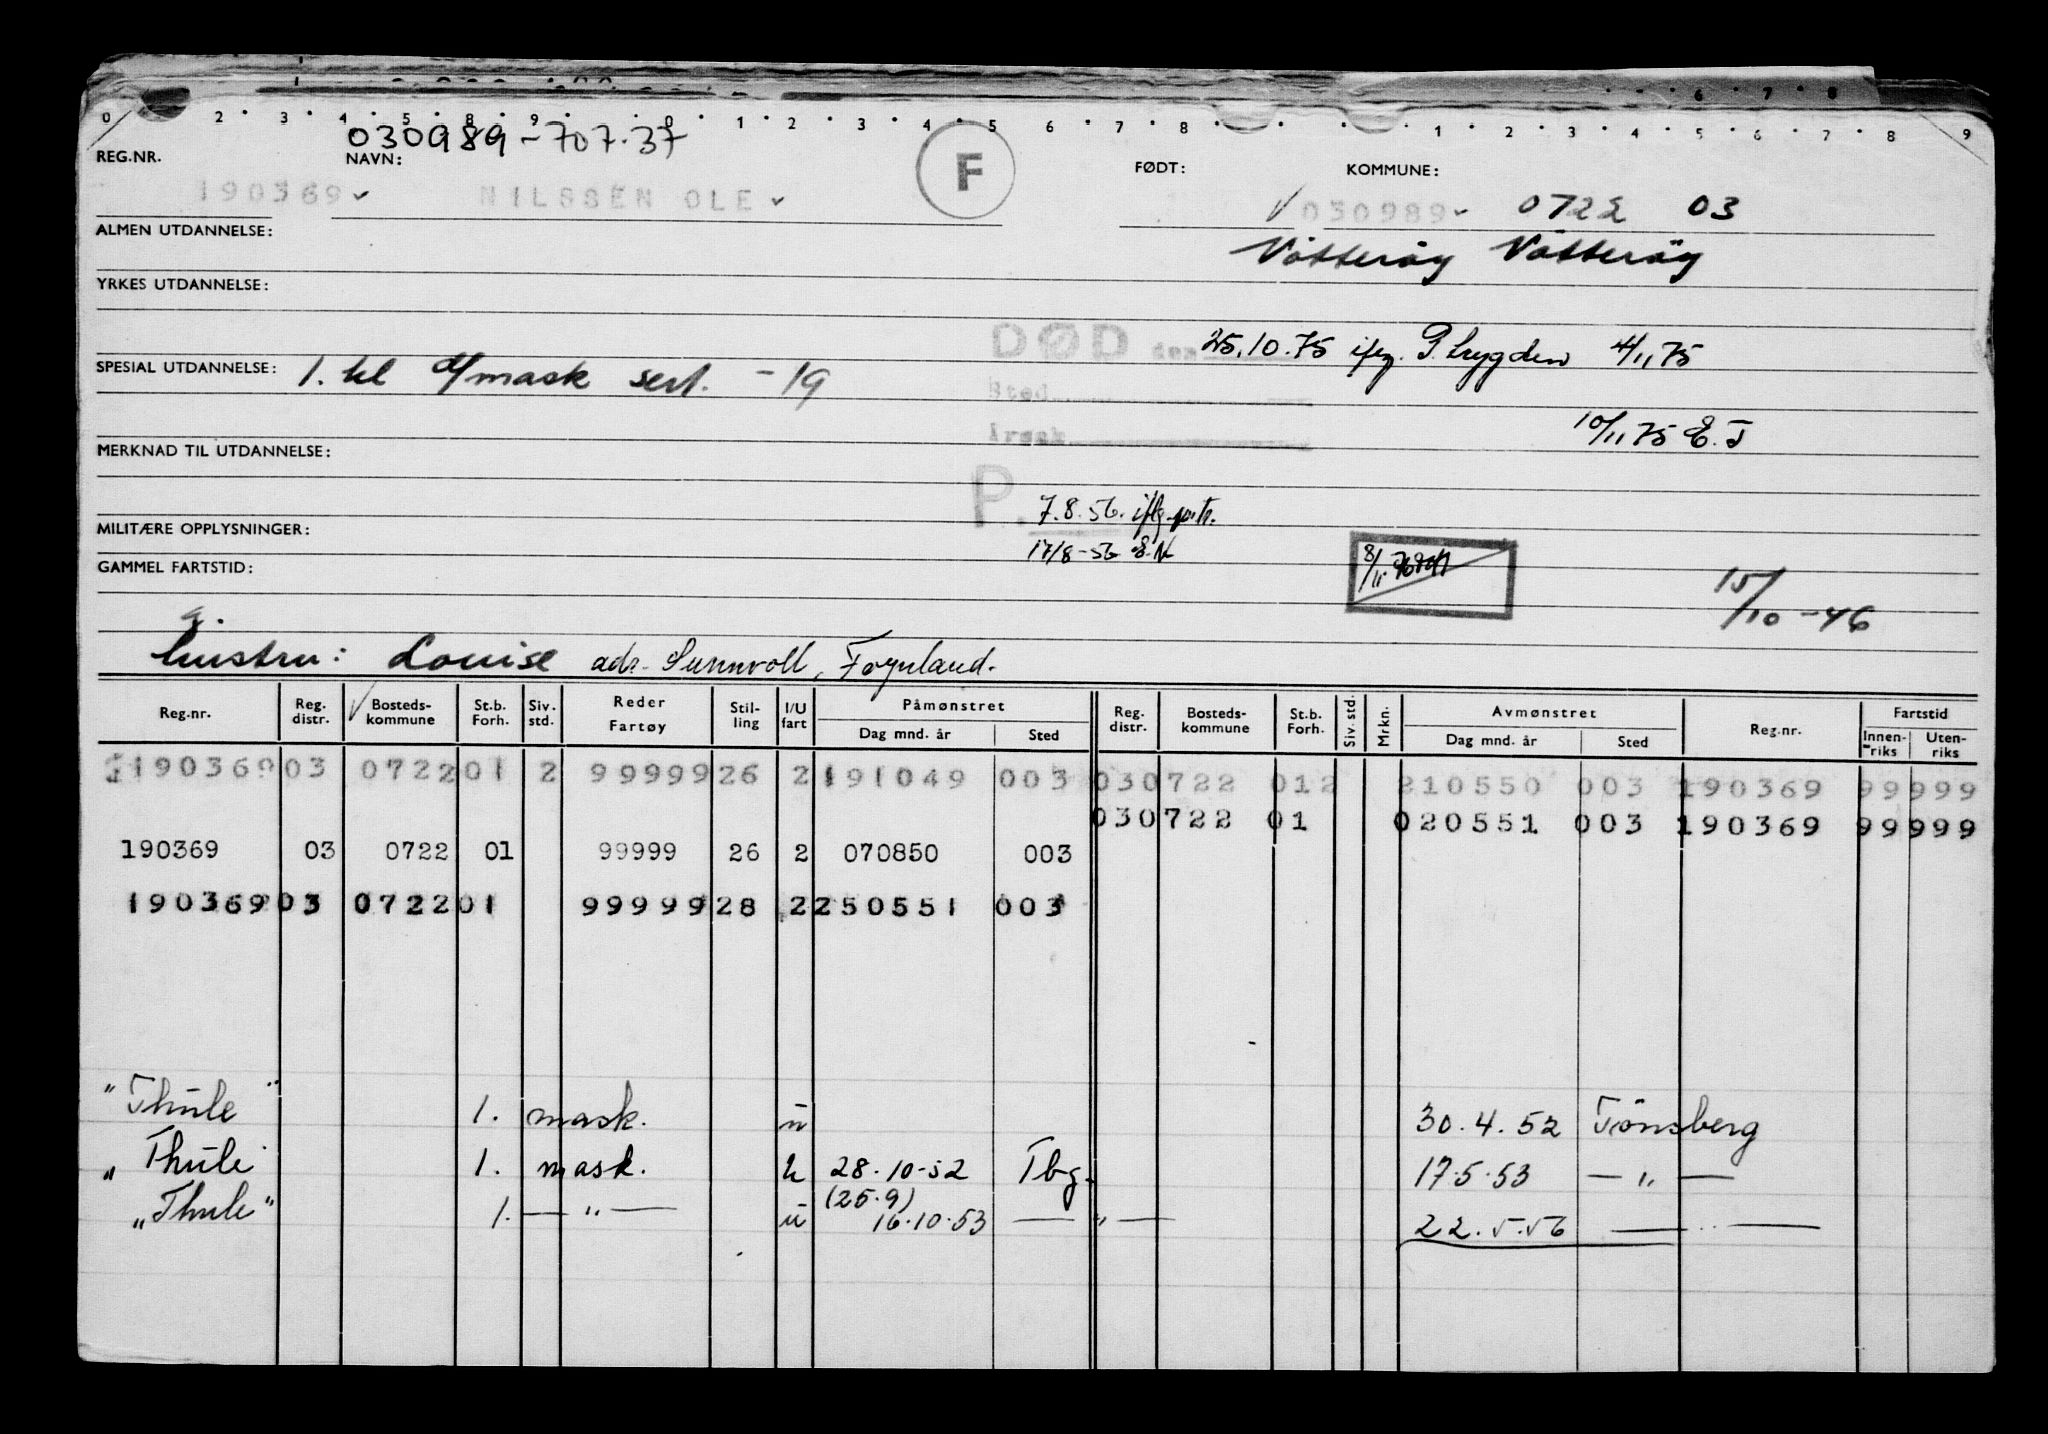 0 2 3 4 5 8 9 0 1 2 3 4 5 6 7 8 1 2 3 4 5 6 7 8 9
030989-707.37
REG.NR. NAVN: F FØDT: KOMMUNE:
190369 NILSSEN OLE 030989 0722 03
ALMEN UTDANNELSE:
YRKES UTDANNELSE:
DØD den 25.10.75 4/11 75
SPESIAL UTDANNELSE: 1. kl d/mask sert. -19
Sted
Årsak
10/11 75 E.T
MERKNAD TIL UTDANNELSE:
P. 7.8.56. iflg.
MILITÆRE OPPLYSNINGER:
17/8-56
GAMMEL FARTSTID:
8/11
15/10-46
g.
hustru: Louise adr. Sunnvoll, Føynland.
Reg.nr. Reg. distr. Bosteds-kommune St.b. Forh. Siv. std. Reder Fartøy Stil-ling I/U fart Påmønstret Dag mnd. år Sted Reg. distr. Bosteds-kommune St.b. Forh. Siv. std. Mrkn. Avmønstret Dag mnd. år Sted Reg.nr. Fartstid Innen-riks Uten-riks
190369 03 0722 01 2 99999 26 2 191049 003 03 0722 01 2 210550 003 190369 99 999
03 0722 01 020551 003 190369 99 999
190369 03 0722 01 99999 26 2 070850 003
190369 03 0722 01 99999 28 2 250551 003
"Thule" 1. mask. u 30.4.52 Tönsberg
"Thule" 1. mask. u 28.10-52 Tbg. 17.5.53 — " —
(25.9)
"Thule" 1. — " — u 16.10.53 — " — 22.5.56 — " —